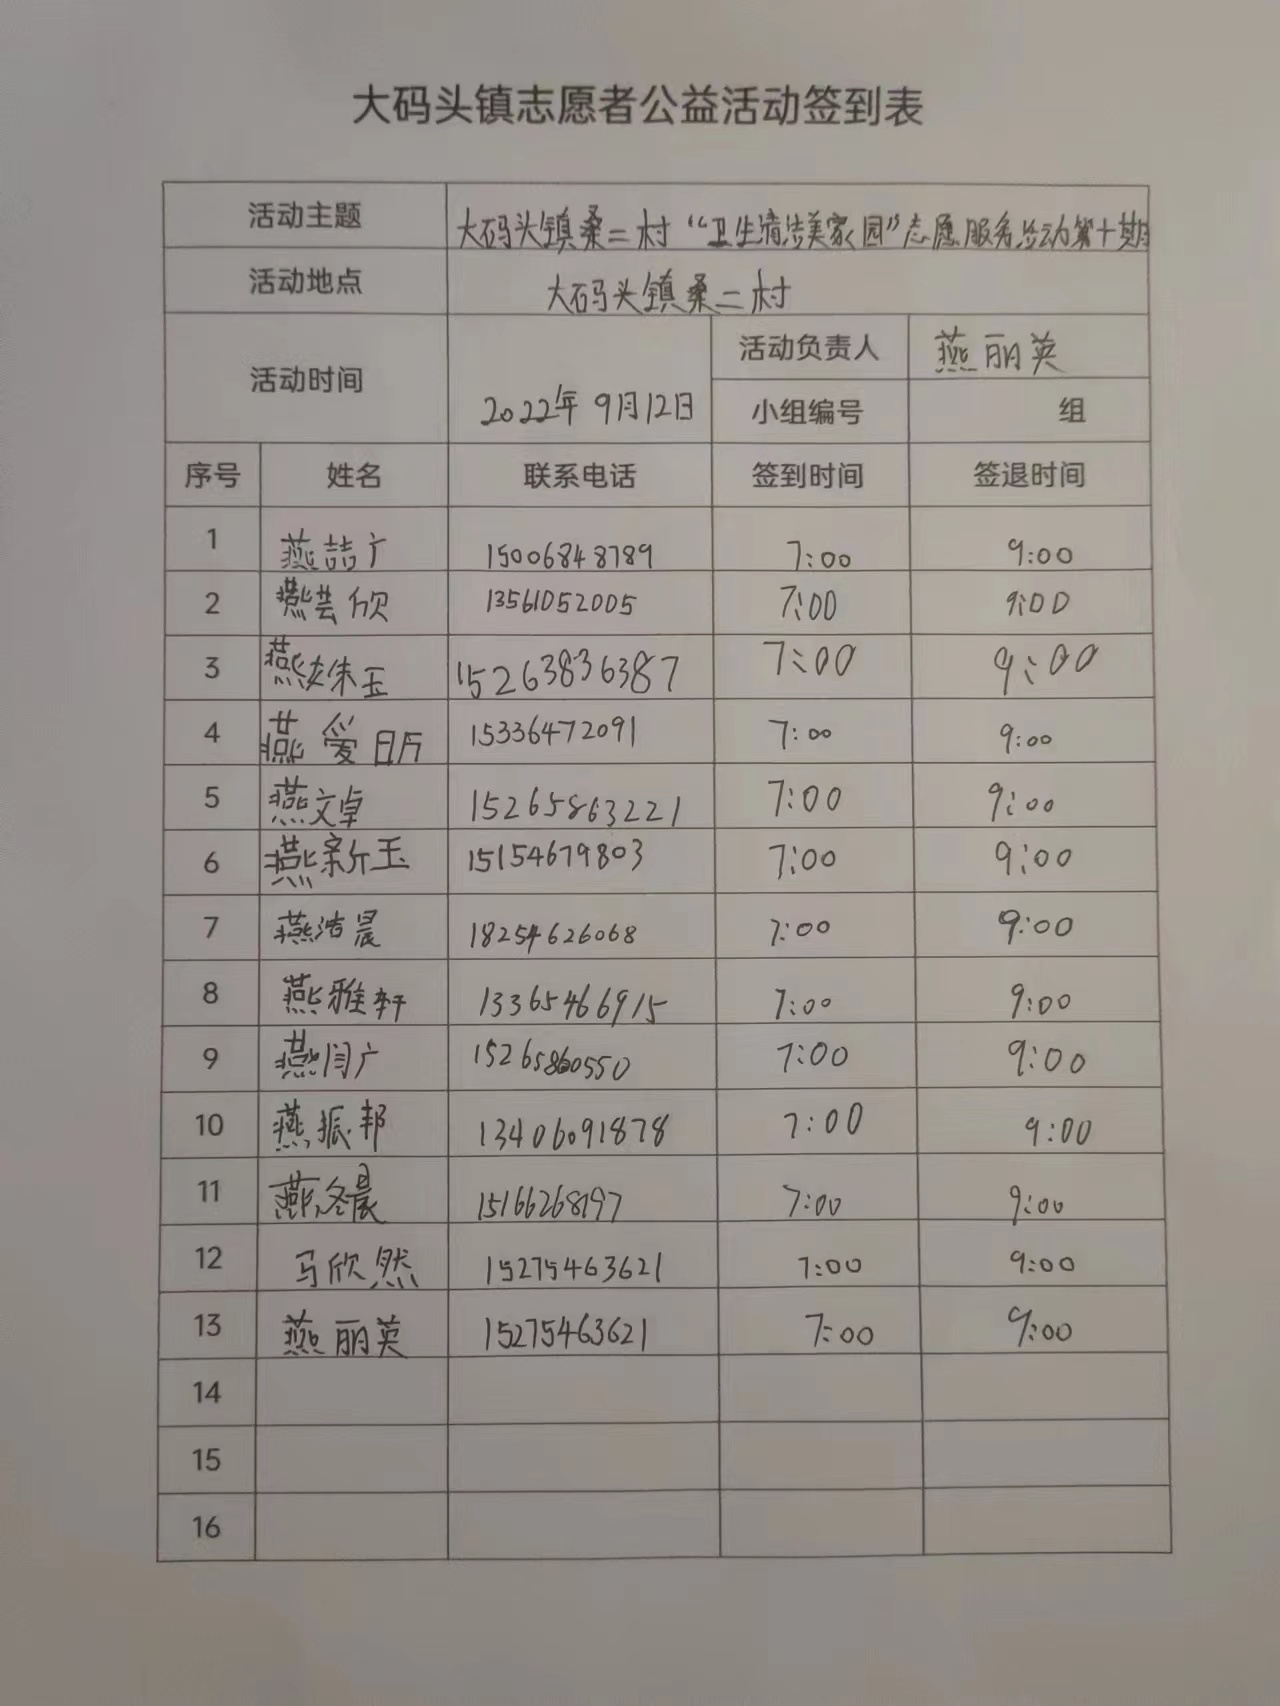 大码头镇志愿者公益活动签到表
活动主题 大码头镇桑二村“卫生清洁美家园”志愿服务活动第十期
活动地点 大码头镇桑二村
活动时间 2022年9月12日 活动负责人 燕丽英
小组编号 组
序号 姓名 联系电话 签到时间 签退时间
1 燕喆广 15006848789 7:00 9:00
2 燕芸欣 13561052005 7:00 9:00
3 燕姝玉 15263836387 7:00 9:00
4 燕爱 15336472091 7:00 9:00
5 燕文卓 15265863221 7:00 9:00
6 燕新玉 15154679803 7:00 9:00
7 燕浩晨 18254626068 7:00 9:00
8 燕雅轩 13365466915 7:00 9:00
9 燕闫广 15265860550 7:00 9:00
10 燕振邦 13406091878 7:00 9:00
11 燕冬晨 15166268197 7:00 9:00
12 马欣然 15275463621 7:00 9:00
13 燕丽英 15275463621 7:00 9:00
14
15
16